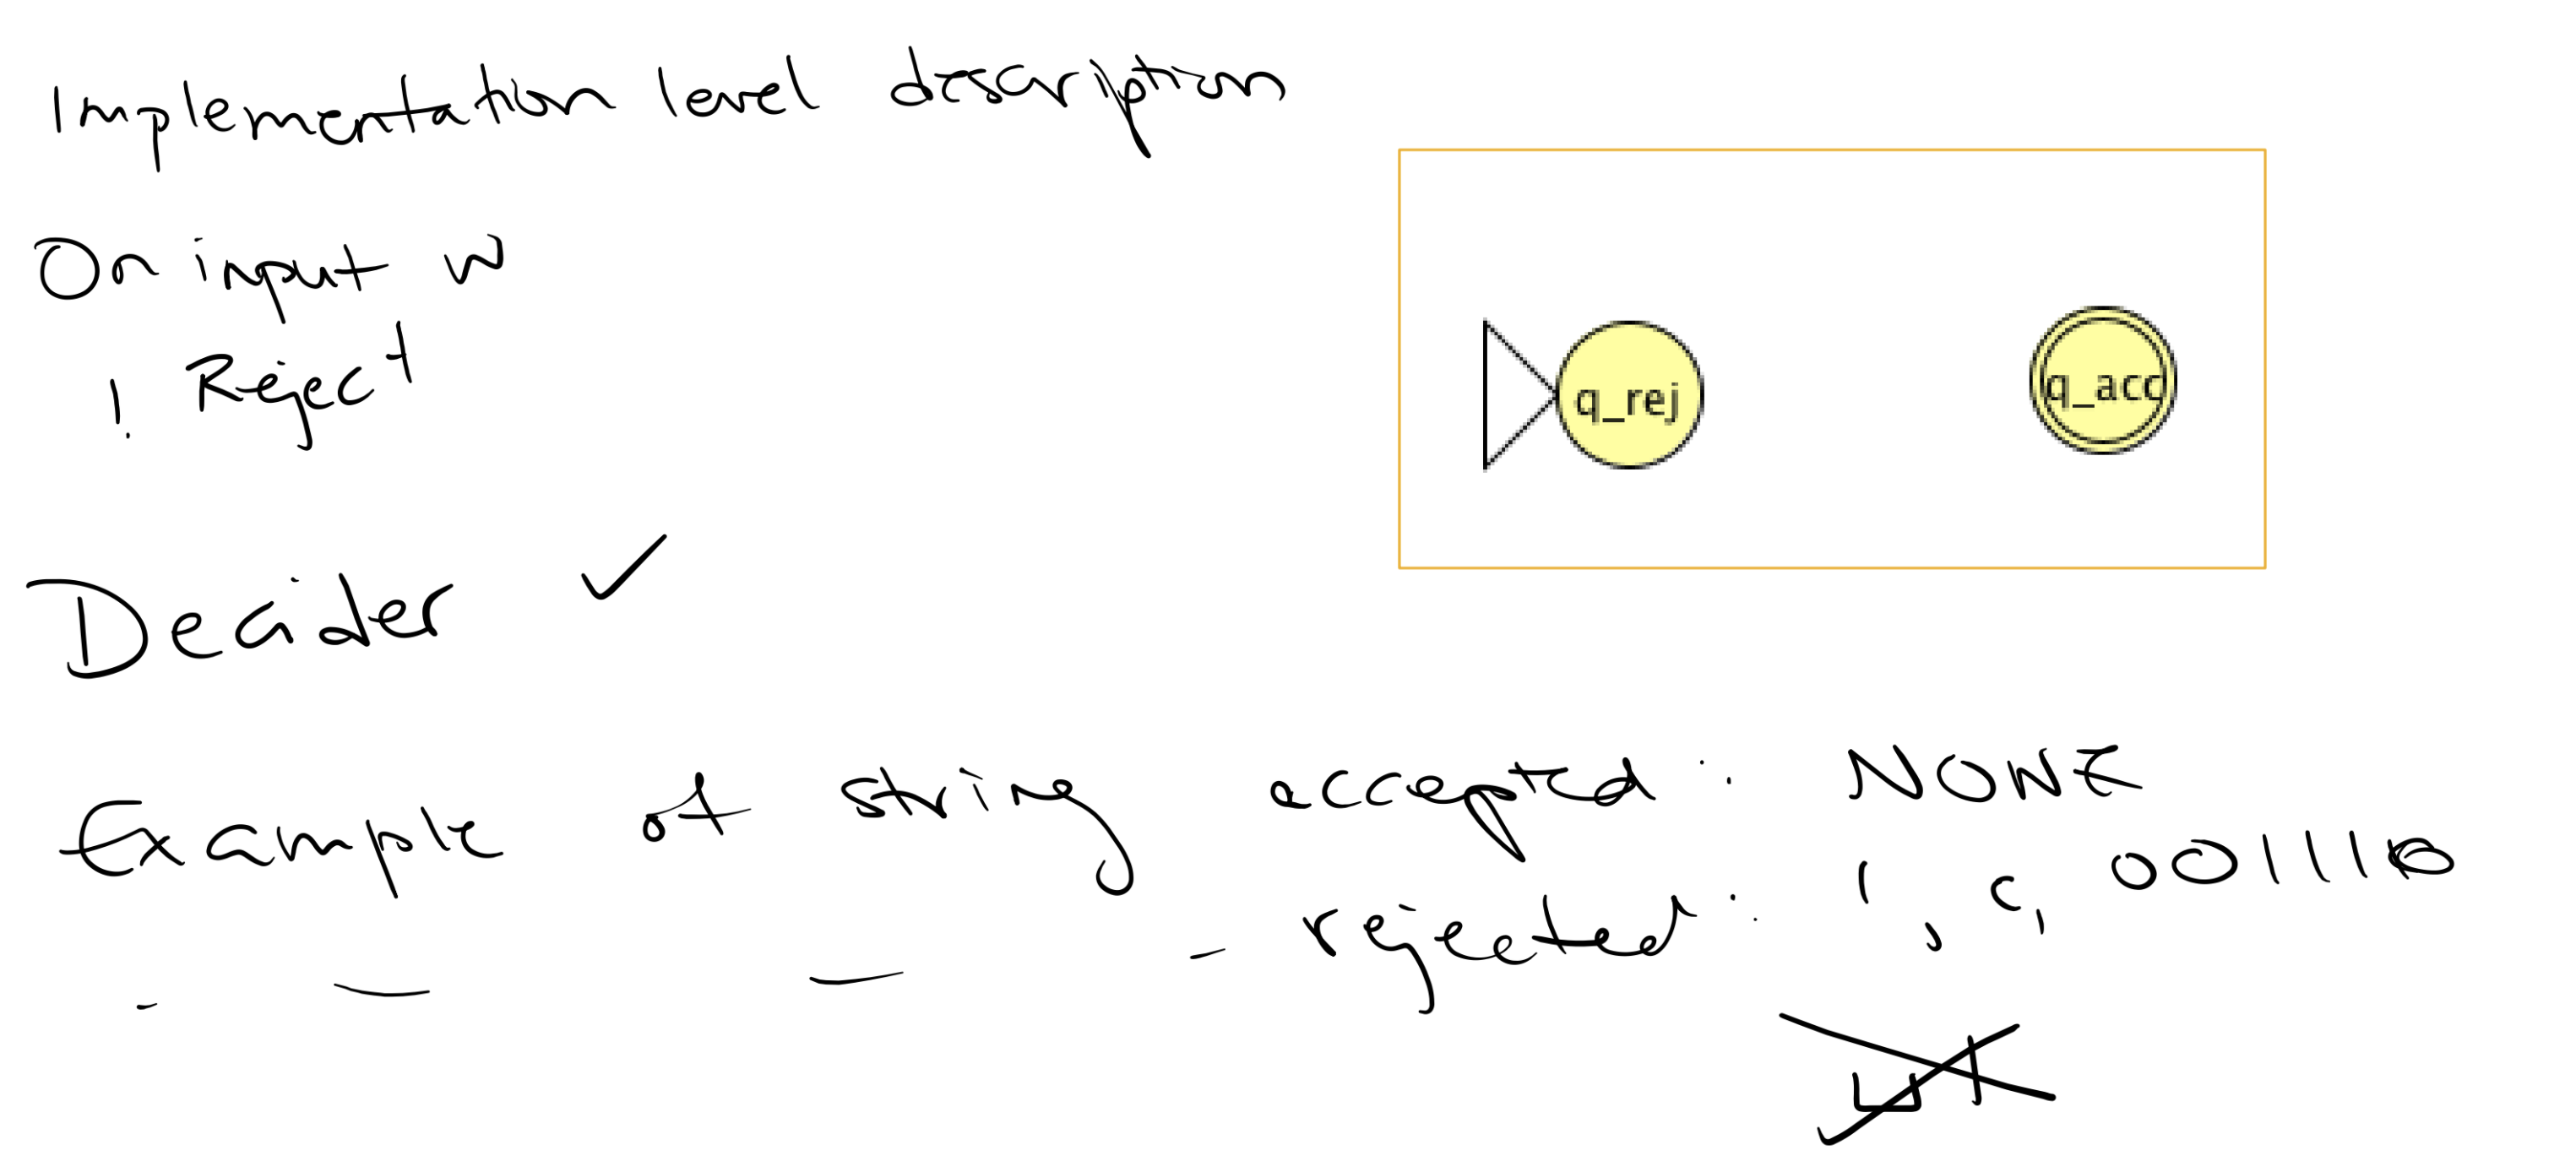 Implementation level description
On input w
1. Reject
q_rej
q_acc
Decider ✓
Example of string accepted: NONE
- — — - rejected: 1, ε, 001110